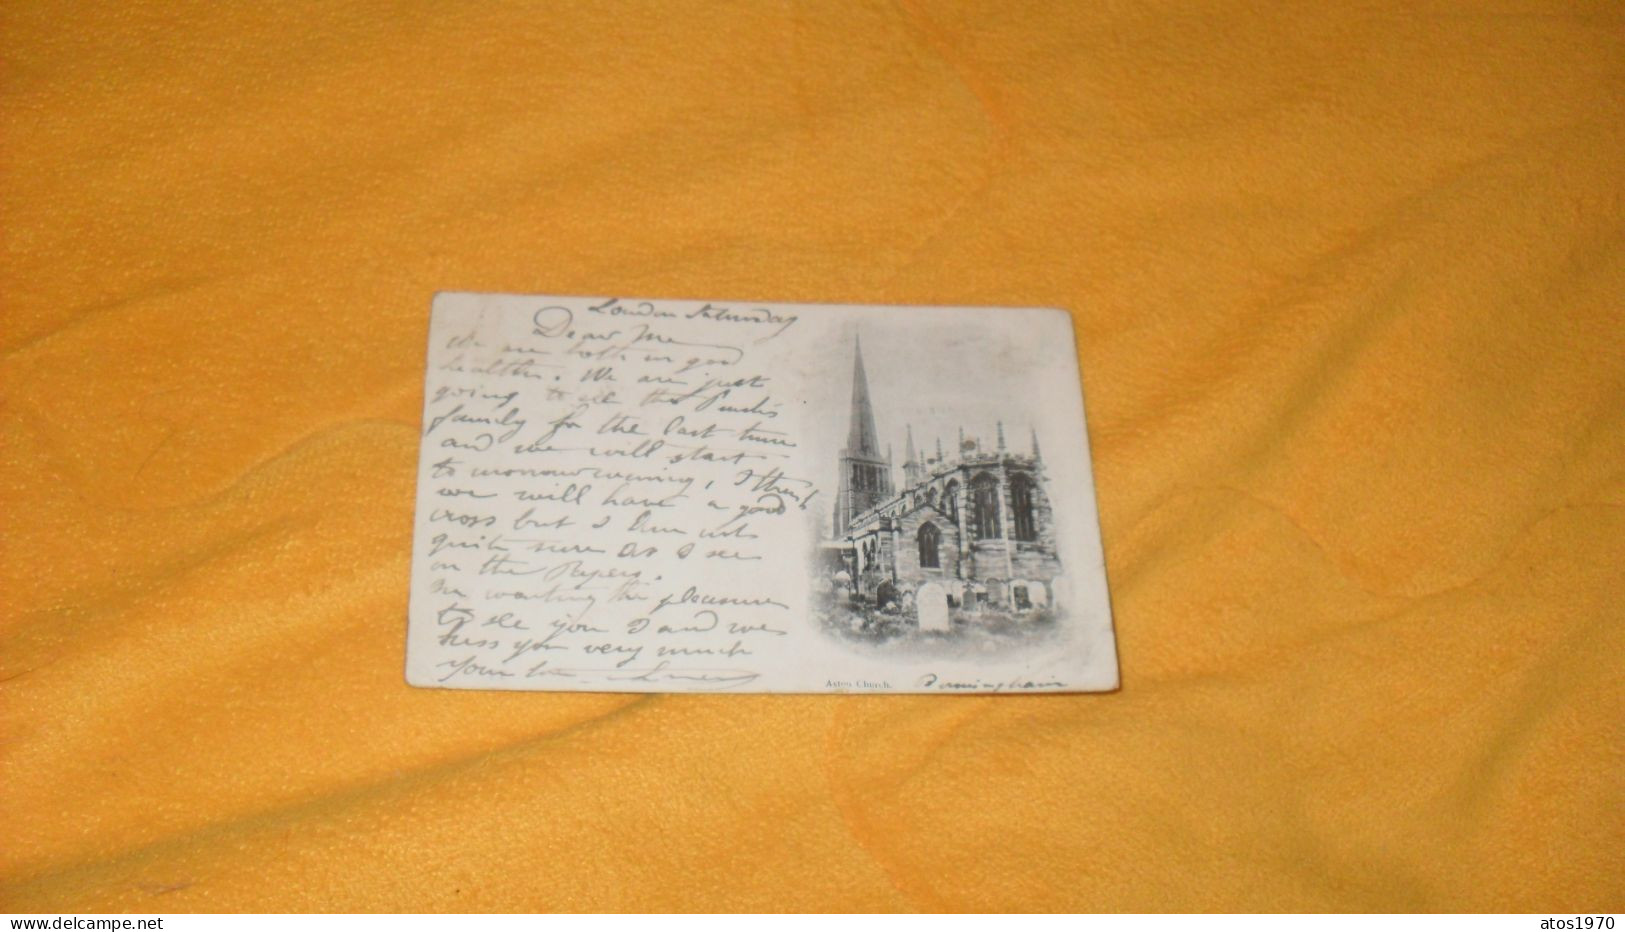 London Saturday
Dear Me
We are both in good
health. We are just
going to see the
family for the last time
and we will start
to morrow morning, I think
we will have a good
cross but I am not
quite sure as I see
on the Papers.
waiting the pleasure
to see you I and we
kiss you very much
Your
Aston Church. Birmingham
www.delcampe.net
atos1970